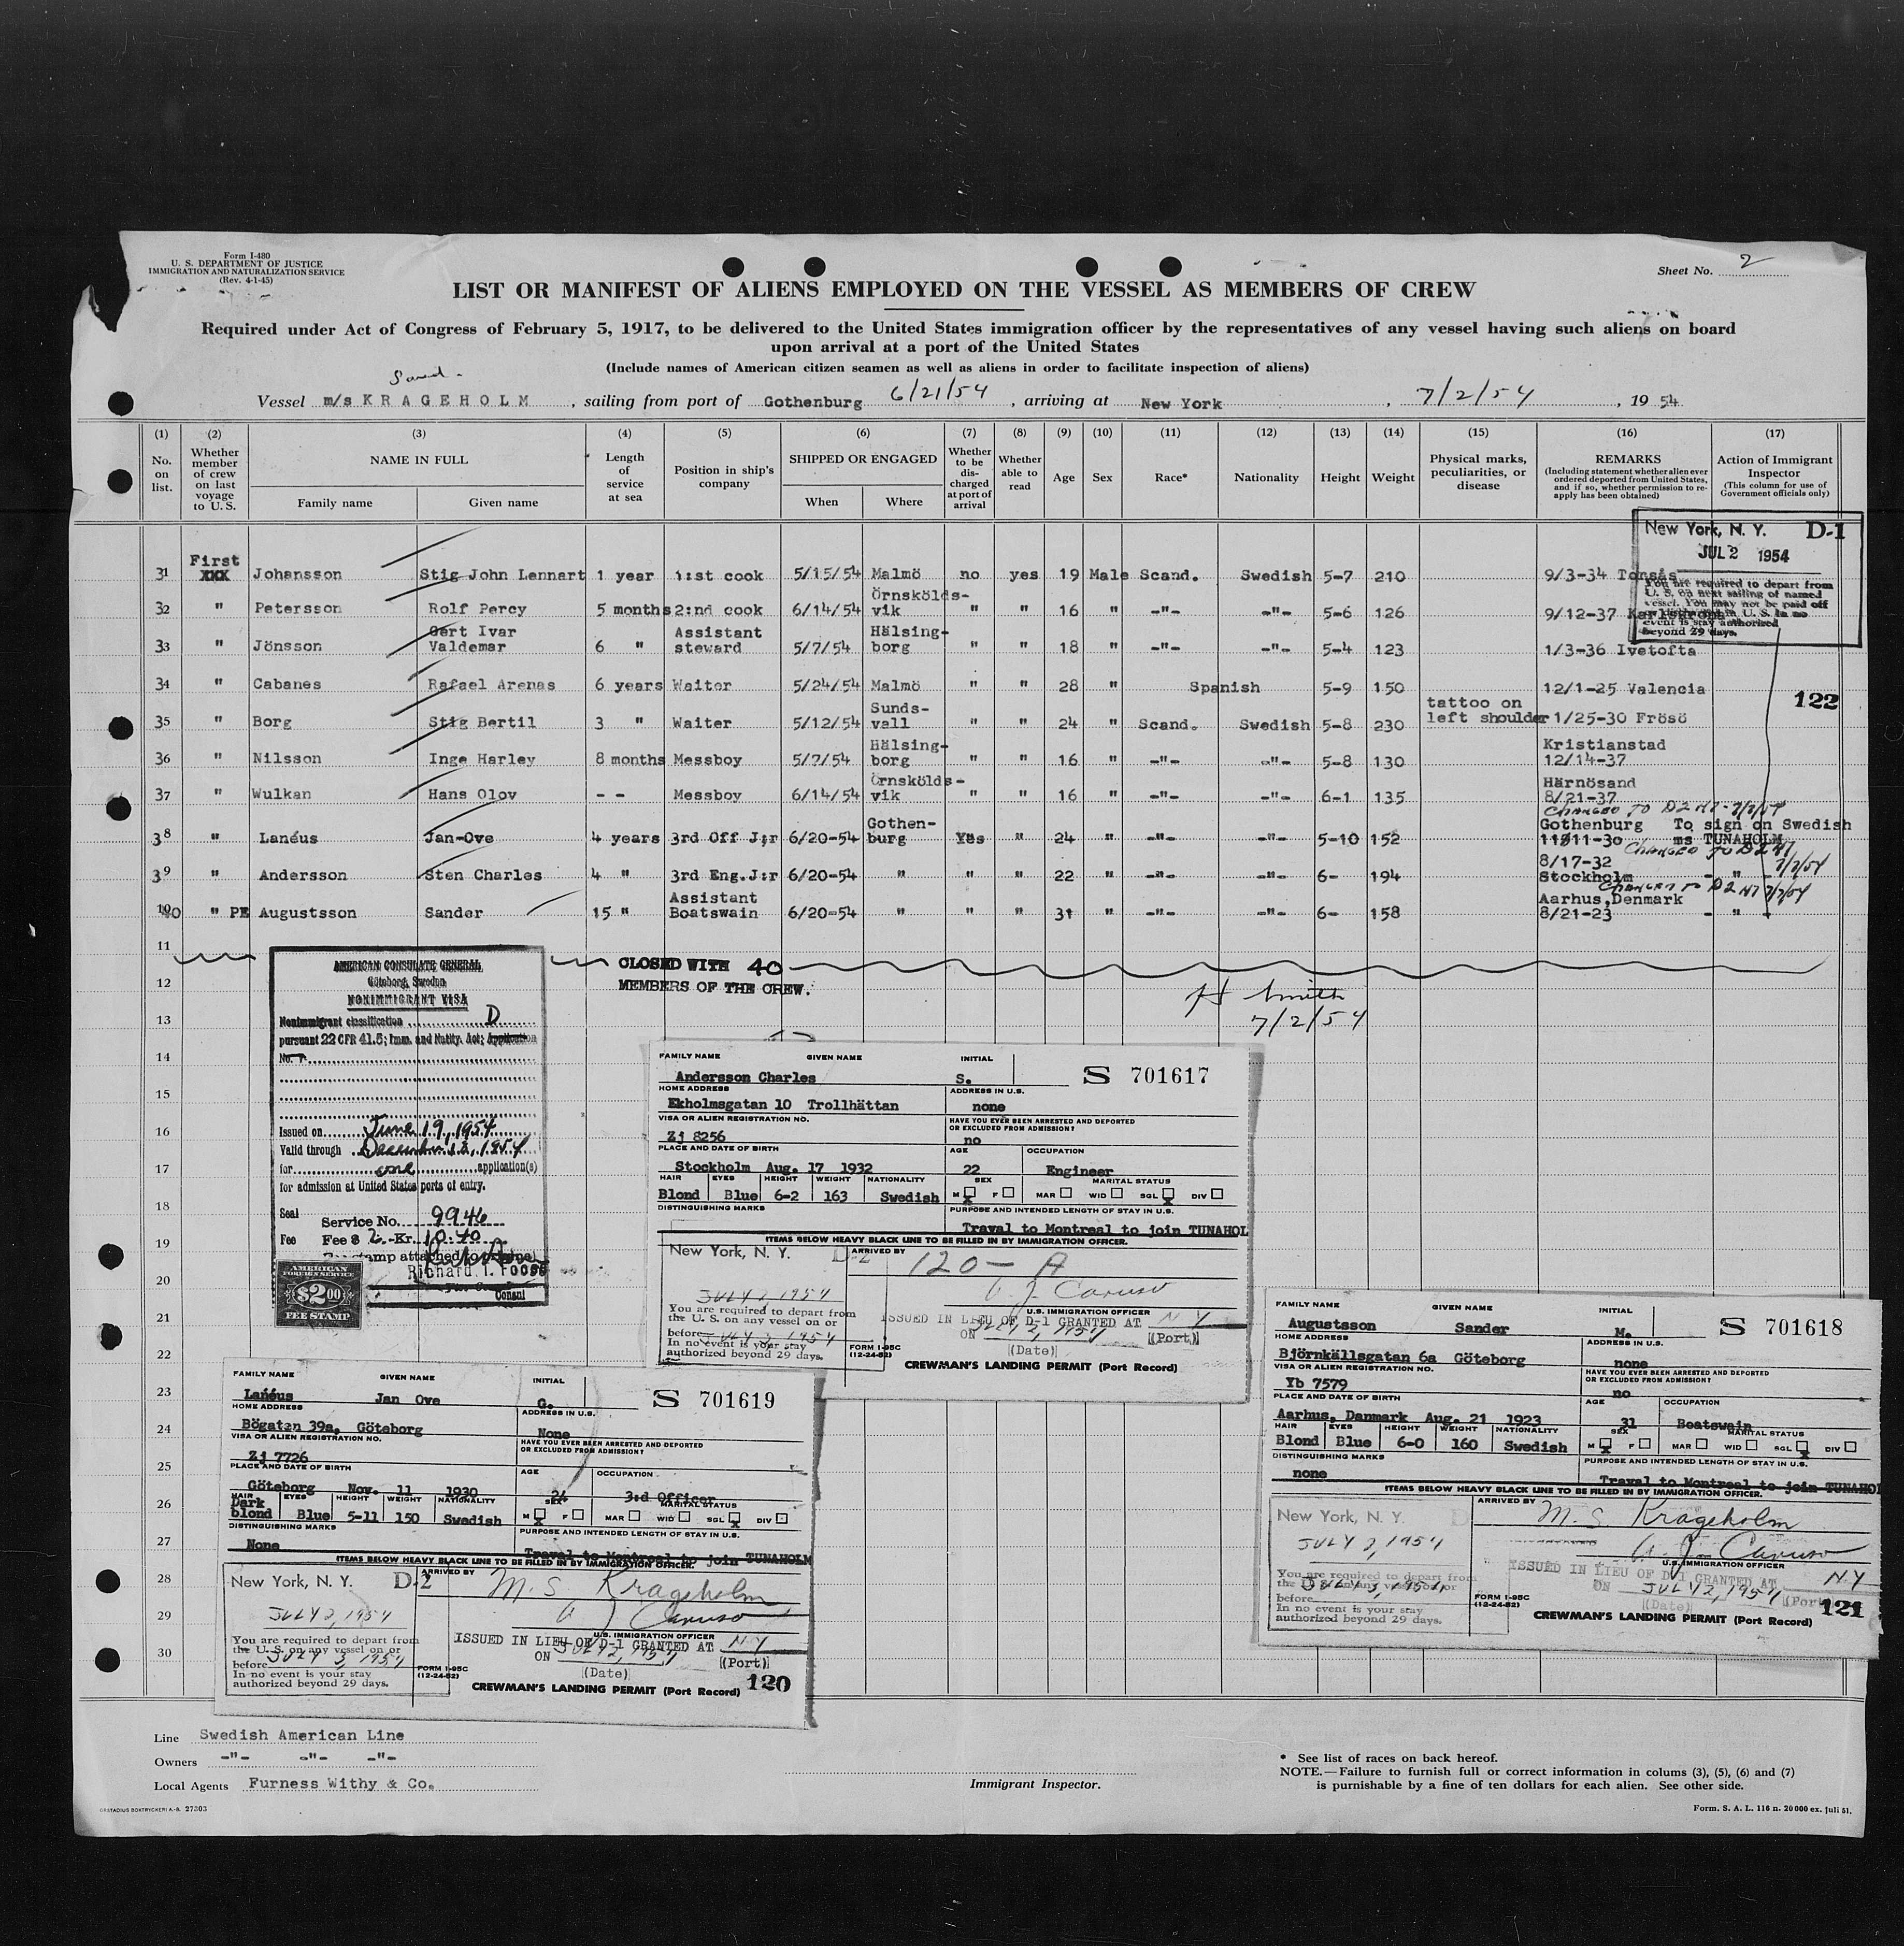 Form I-480
U. S. DEPARTMENT OF JUSTICE
IMMIGRATION AND NATURALIZATION SERVICE
(Rev. 4-1-45)
Sheet No. 2
LIST OR MANIFEST OF ALIENS EMPLOYED ON THE VESSEL AS MEMBERS OF CREW
Required under Act of Congress of February 5, 1917, to be delivered to the United States immigration officer by the representatives of any vessel having such aliens on board
upon arrival at a port of the United States
(Include names of American citizen seamen as well as aliens in order to facilitate inspection of aliens)
Vessel m/s KRAGEHOLM, sailing from port of Gothenburg 6/21/54, arriving at New York, 7/2/54, 19 54
(1) (2) (3) (4) (5) (6) (7) (8) (9) (10) (11) (12) (13) (14) (15) (16) (17)
No. on list.
Whether member of crew on last voyage to U. S.
NAME IN FULL
Family name
Given name
Length of service at sea
Position in ship's company
SHIPPED OR ENGAGED
When
Where
Whether to be discharged at port of arrival
Whether able to read
Age
Sex
Race*
Nationality
Height
Weight
Physical marks, peculiarities, or disease
REMARKS
(Including statement whether alien ever ordered deported from United States, and if so, whether permission to re-apply has been obtained)
Action of Immigrant Inspector
(This column for use of Government officials only)
New York, N. Y. D-1
JUL 2 1954
You are required to depart from
U. S. on next sailing of named
vessel. You may not be paid off
in U. S. In no
event is stay authorized
beyond 29 days.
31 First XXX Johansson Stig John Lennart 1 year 1:st cook 5/15/54 Malmö no yes 19 Male Scand. Swedish 5-7 210 9/3-34 Tonsås
32 " Petersson Rolf Percy 5 months 2:nd cook 6/14/54 Örnsköldsvik " " 16 " -"- -"- 5-6 126 9/12-37 Karlskrona
33 " Jönsson Gert Ivar Valdemar 6 " Assistant steward 5/7/54 Hälsingborg " " 18 " -"- -"- 5-4 123 1/3-36 Ivetofta
34 " Cabanes Rafael Arenas 6 years Waiter 5/24/54 Malmö " " 28 " Spanish 5-9 150 12/1-25 Valencia
122
35 " Borg Stig Bertil 3 " Waiter 5/12/54 Sundsvall " " 24 " Scand. Swedish 5-8 230 tattoo on left shoulder 1/25-30 Frösö
36 " Nilsson Inge Harley 8 months Messboy 5/7/54 Hälsingborg " " 16 " -"- -"- 5-8 130 Kristianstad 12/14-37
37 " Wulkan Hans Olov - - Messboy 6/14/54 Örnsköldsvik " " 16 " -"- -"- 6-1 135 Härnösand 8/21-37
CHANGED TO D2 NY - 7/2/54
38 " Lanéus Jan-Ove 4 years 3rd Off J:r 6/20-54 Gothenburg Yes " 24 " -"- -"- 5-10 152 Gothenburg 11/11-30 To sign on Swedish ms TUNAHOLM
CHANGED TO D2 NY 7/2/54
39 " Andersson Sten Charles 4 " 3rd Eng.J:r 6/20-54 " " " 22 " -"- -"- 6- 194 8/17-32 Stockholm - " -
CHANGED TO D2 NY 7/2/54
40 " PE Augustsson Sander 15 " Assistant Boatswain 6/20-54 " " " 31 " -"- -"- 6- 158 Aarhus,Denmark 8/21-23 - "
11
12
13
14
15
16
17
18
19
20
21
22
23
24
25
26
27
28
29
30
CLOSED WITH 40
MEMBERS OF THE CREW.
H Smith
7/2/54
AMERICAN CONSULATE GENERAL
Göteborg, Sweden
NONIMMIGRANT VISA
Nonimmigrant classification D
pursuant 22 CFR 41.5; Imm. and Natlty. Act; Application
No. V
Issued on June 19, 1954
Valid through December 18, 1954
for one application(s)
for admission at United States ports of entry.
Seal
Service No. 9946
Fee Fee $ 2.-Kr. 10.40
stamp attached to
Richard T. Foose
Consul
AMERICAN
FOREIGN SERVICE
$2.00
FEE STAMP
FAMILY NAME GIVEN NAME INITIAL
Andersson Charles S. S 701617
HOME ADDRESS ADDRESS IN U.S.
Ekholmsgatan 10 Trollhättan none
VISA OR ALIEN REGISTRATION NO. HAVE YOU EVER BEEN ARRESTED AND DEPORTED OR EXCLUDED FROM ADMISSION?
Zj 8256 no
PLACE AND DATE OF BIRTH AGE OCCUPATION
Stockholm Aug. 17 1932 22 Engineer
HAIR EYES HEIGHT WEIGHT NATIONALITY SEX MARITAL STATUS
Blond Blue 6-2 163 Swedish M X F MAR WID SGL X DIV
DISTINGUISHING MARKS PURPOSE AND INTENDED LENGTH OF STAY IN U.S.
Traval to Montreal to join TUNAHOL
ITEMS BELOW HEAVY BLACK LINE TO BE FILLED IN BY IMMIGRATION OFFICER.
New York, N. Y. D-2 ARRIVED BY 120 - A
JULY 2, 1954
A. J. Caruso
U.S. IMMIGRATION OFFICER
You are required to depart from
the U. S. on any vessel on or
before JULY 3, 1954
In no event is your stay
authorized beyond 29 days.
ISSUED IN LIEU OF D-1 GRANTED AT NY
ON JULY 2, 1954 (Port)
(Date)
FORM I-95C
(12-24-52)
CREWMAN'S LANDING PERMIT (Port Record)
FAMILY NAME GIVEN NAME INITIAL
Augustsson Sander M. S 701618
HOME ADDRESS ADDRESS IN U.S.
Björnkällsgatan 6a Göteborg none
VISA OR ALIEN REGISTRATION NO. HAVE YOU EVER BEEN ARRESTED AND DEPORTED OR EXCLUDED FROM ADMISSION?
Yb 7579 no
PLACE AND DATE OF BIRTH AGE OCCUPATION
Aarhus, Danmark Aug. 21 1923 31 Boatswain
HAIR EYES HEIGHT WEIGHT NATIONALITY SEX MARITAL STATUS
Blond Blue 6-0 160 Swedish M X F MAR WID SGL X DIV
DISTINGUISHING MARKS PURPOSE AND INTENDED LENGTH OF STAY IN U.S.
none Traval to Montreal to join TUNAHO
ITEMS BELOW HEAVY BLACK LINE TO BE FILLED IN BY IMMIGRATION OFFICER.
New York, N. Y. D ARRIVED BY M. S. Krageholm
JULY 2, 1954
A. J. Caruso
U.S. IMMIGRATION OFFICER
You are required to depart from
the U. S. on any vessel on or
before JULY 3, 1954
In no event is your stay
authorized beyond 29 days.
ISSUED IN LIEU OF D-1 GRANTED AT NY
ON JULY 2, 1954 (Port)
(Date)
121
FORM I-95C
(12-24-52)
CREWMAN'S LANDING PERMIT (Port Record)
FAMILY NAME GIVEN NAME INITIAL
Lanéus Jan Ove G. S 701619
HOME ADDRESS ADDRESS IN U.S.
Bögatan 39a, Göteborg None
VISA OR ALIEN REGISTRATION NO. HAVE YOU EVER BEEN ARRESTED AND DEPORTED OR EXCLUDED FROM ADMISSION?
Zj 7726
PLACE AND DATE OF BIRTH AGE OCCUPATION
Göteborg Nov. 11 1930 24 3:rd Officer
HAIR EYES HEIGHT WEIGHT NATIONALITY SEX MARITAL STATUS
Dark blond Blue 5-11 150 Swedish M X F MAR WID SGL X DIV
DISTINGUISHING MARKS PURPOSE AND INTENDED LENGTH OF STAY IN U.S.
None Traval to Montreal to join TUNAHOLM
ITEMS BELOW HEAVY BLACK LINE TO BE FILLED IN BY IMMIGRATION OFFICER.
New York, N. Y. D-2 ARRIVED BY M. S Krageholm
JULY 2, 1954
A J Caruso
U.S. IMMIGRATION OFFICER
You are required to depart from
the U. S. on any vessel on or
before JULY 3, 1954
In no event is your stay
authorized beyond 29 days.
ISSUED IN LIEU OF D-1 GRANTED AT NY
ON JULY 2, 1954 (Port)
(Date)
FORM I-95C
(12-24-52)
CREWMAN'S LANDING PERMIT (Port Record) 120
Line Swedish American Line
Owners -"- -"- -"-
Local Agents Furness Withy & Co.
Immigrant Inspector.
* See list of races on back hereof.
NOTE.—Failure to furnish full or correct information in colums (3), (5), (6) and (7)
is punishable by a fine of ten dollars for each alien. See other side.
BOKTRYCKERI A.-B. 27303
Form. S. A. L. 116 n. 20 000 ex. juli 51.